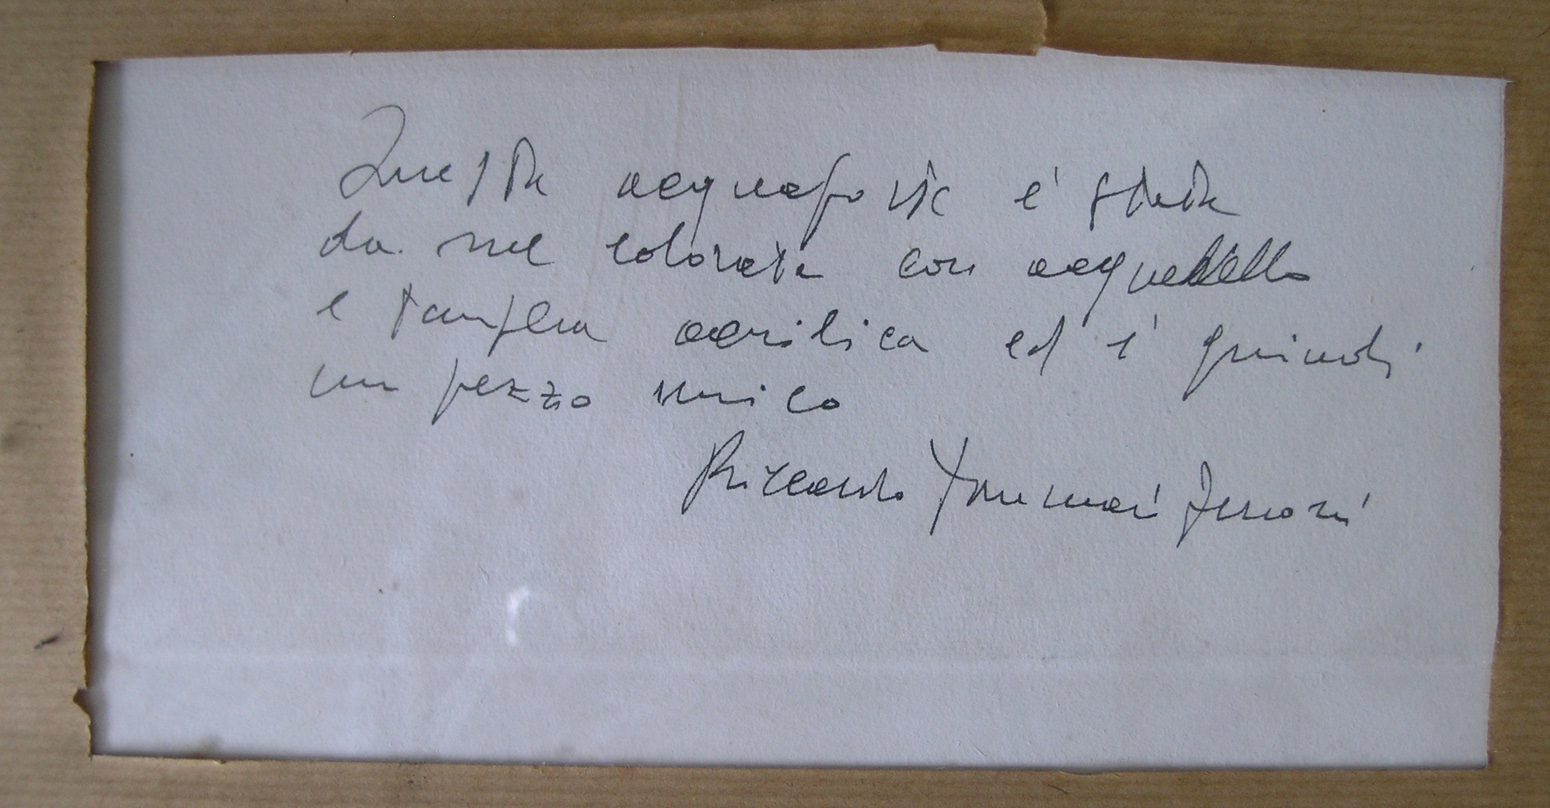 Questa acquaforte è stata
da me colorata con acquerello
e tempera acrilica ed è quindi
un pezzo unico
Riccardo Tommasi Ferroni